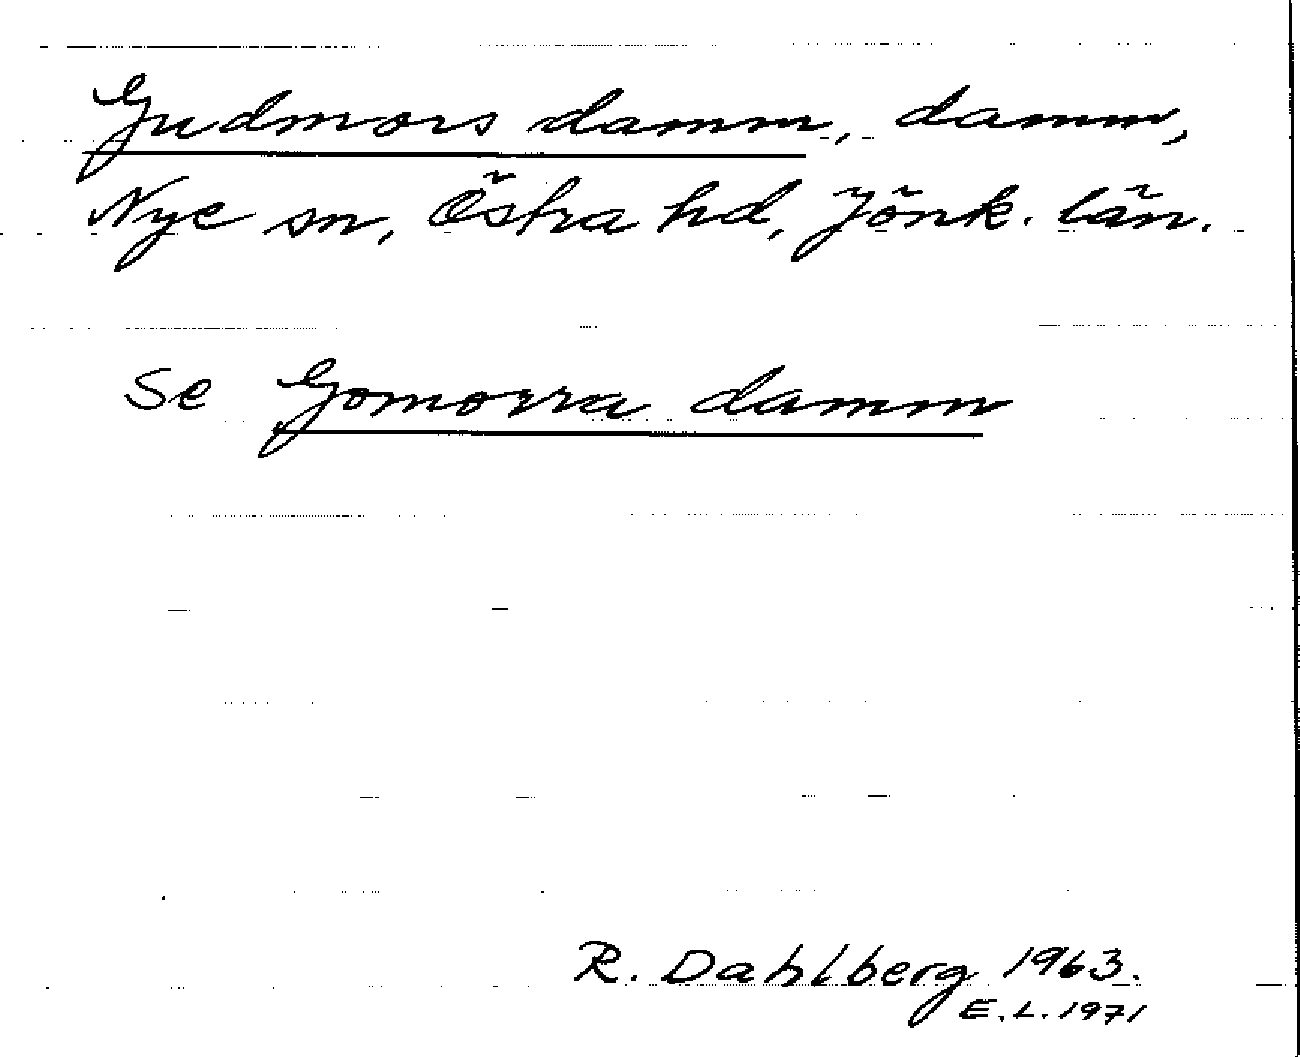 Gudmors damm, damm,
Nye sn, Östra hd, Jönk. län.
Se Gomorra damm
R. Dahlberg 1963.
E.L. 1971